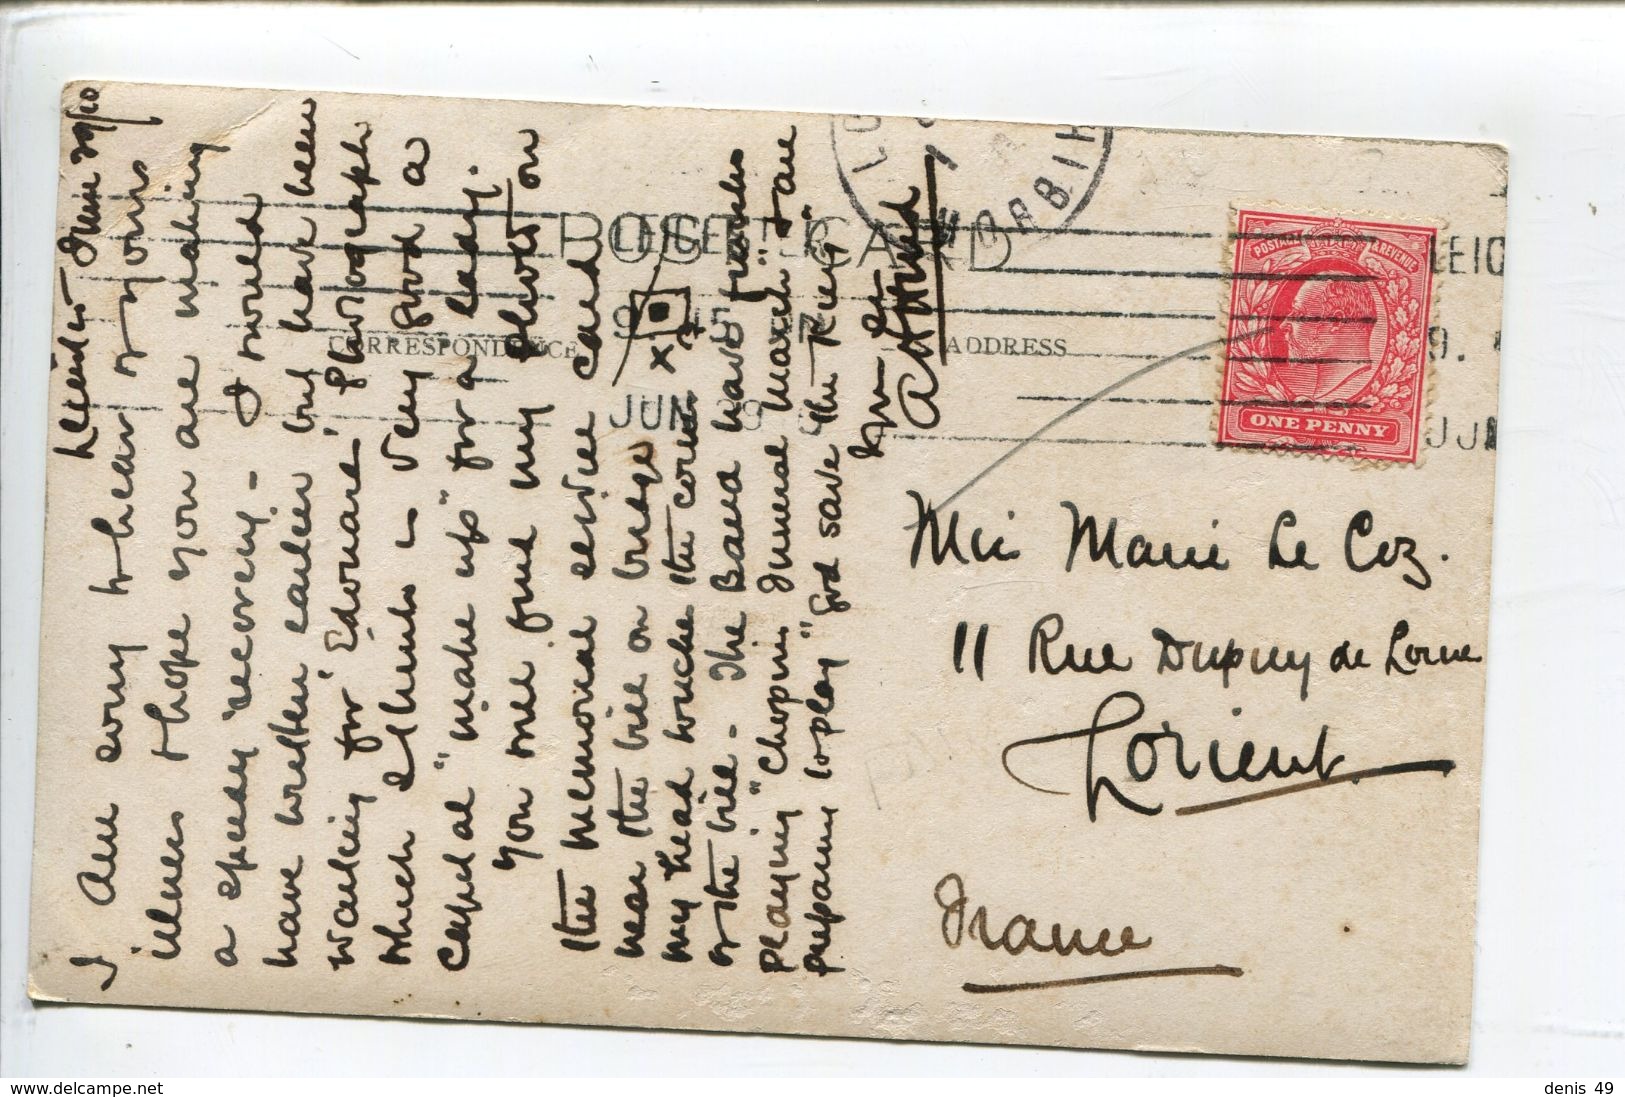 Leicester June 29/10
I am sorry to hear of your
illness & hope you are making
a speedy recovery - I would
have written earlier but have been
waiting for Edward's Photograph
which I think is very good a
capital "make up" for a lady.
You will find my photo on
the Memorial Service card
near the bill on bridge
my head touches the corner
of the bill - The Band have finished
playing "Chopin's Funeral March" & are
preparing to play "God save the King"
POST CARD
CORRESPONDENCE
ADDRESS
LEICESTER
9.15
JUN 29
MORBIHAN
POSTAGE & REVENUE
ONE PENNY
LEIC
9.
JUN
Miss Marie Le Coz.
11 Rue Dupuy de Lome
Lorient
France
denis 49